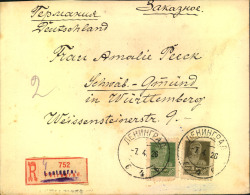 Германия Заказное.
Deutschland
Frau Amalie Peeck
Schwäb.-Gmünd
in Württemberg
Weissensteinerstr. 9.-
2
R 752
ЛЕНИНГРАД ЛЕНИНГРАД
-7.4. 20